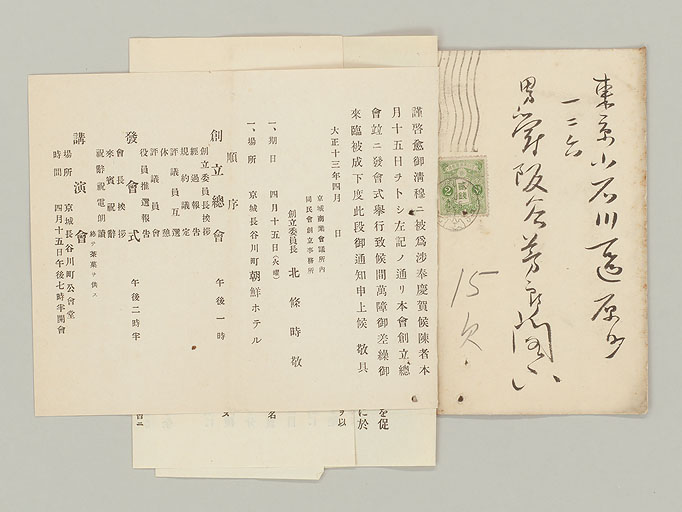 東京小石川區原町
一二六
男爵阪谷芳郎閣下
15
謹啓愈御清穆ニ被爲涉奉慶賀候陳者本
月十五日ヲトシ左記ノ通リ本會創立總
會竝ニ發會式擧行致候間萬障御差繰御
來臨被成下度此段御通知申上候 敬具
大正十三年四月 日
京城商業會議所內
國民會創立事務所
創立委員長 北條時敬
一、期日 四月十五日(火曜)
一、場所 京城長谷川町朝鮮ホテル
順序
創立總會 午後一時
創立委員長挨拶
經過報告
規約議定
評議員互選
休憩
評議員會
役員推選報告
發會式 午後二時半
會長挨拶
來賓祝辭
祝辭祝電朗讀
終テ茶菓ヲ供ス
講演會
場所 京城長谷川町公會堂
時間 四月十五日午後七時半開會
を促
に於
ヲ以
名